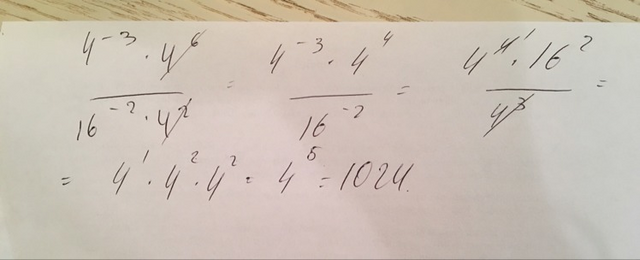 4⁻³ · 4⁶ / 16⁻² · 4² = 4⁻³ · 4⁴ / 16⁻² = 4⁴ ¹ · 16² / 4³ =
= 4¹ · 4² · 4² = 4⁵ = 1024.